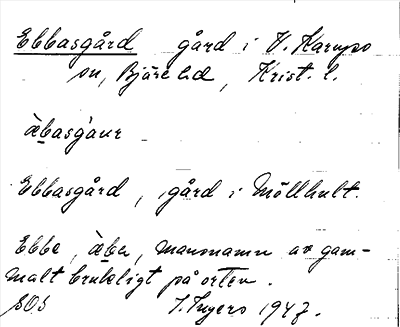 Ebbasgård gård i V. Karups
sn, Bjäre hd, Krist. l.
àbasgàur
Ebbasgård, gård i Möllhult.
Ebbe, àba, mansnamn av gam-
malt brukligt på orten.
SOS I. Ingers 1947.